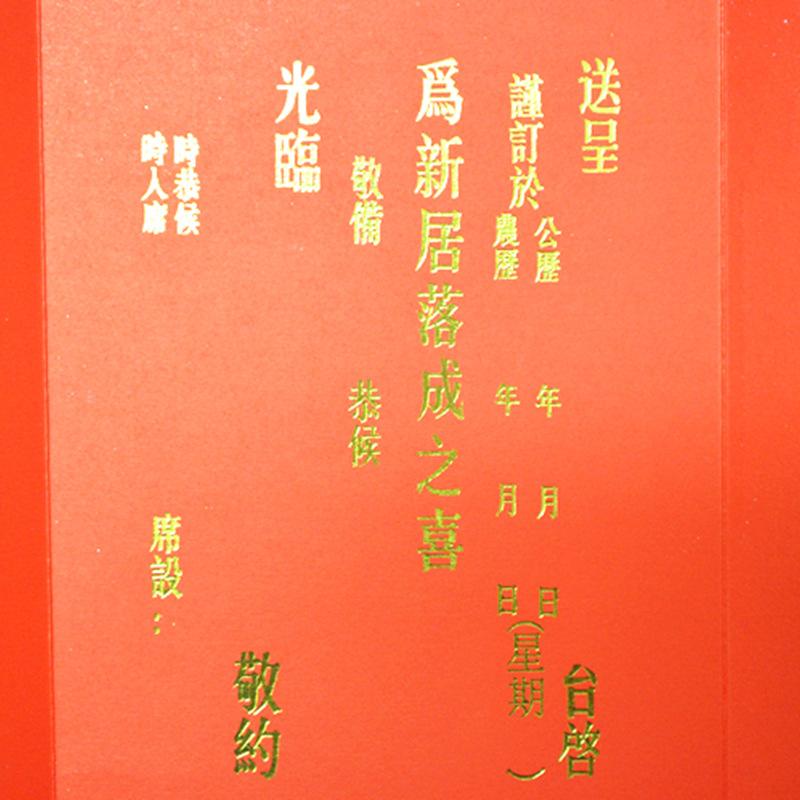 送呈 台啓
公歷 年 月 日
謹訂於 (星期 )
農歷 年 月 日
爲新居落成之喜
敬備 恭候
光臨
敬約
時恭候
時入席
席設：